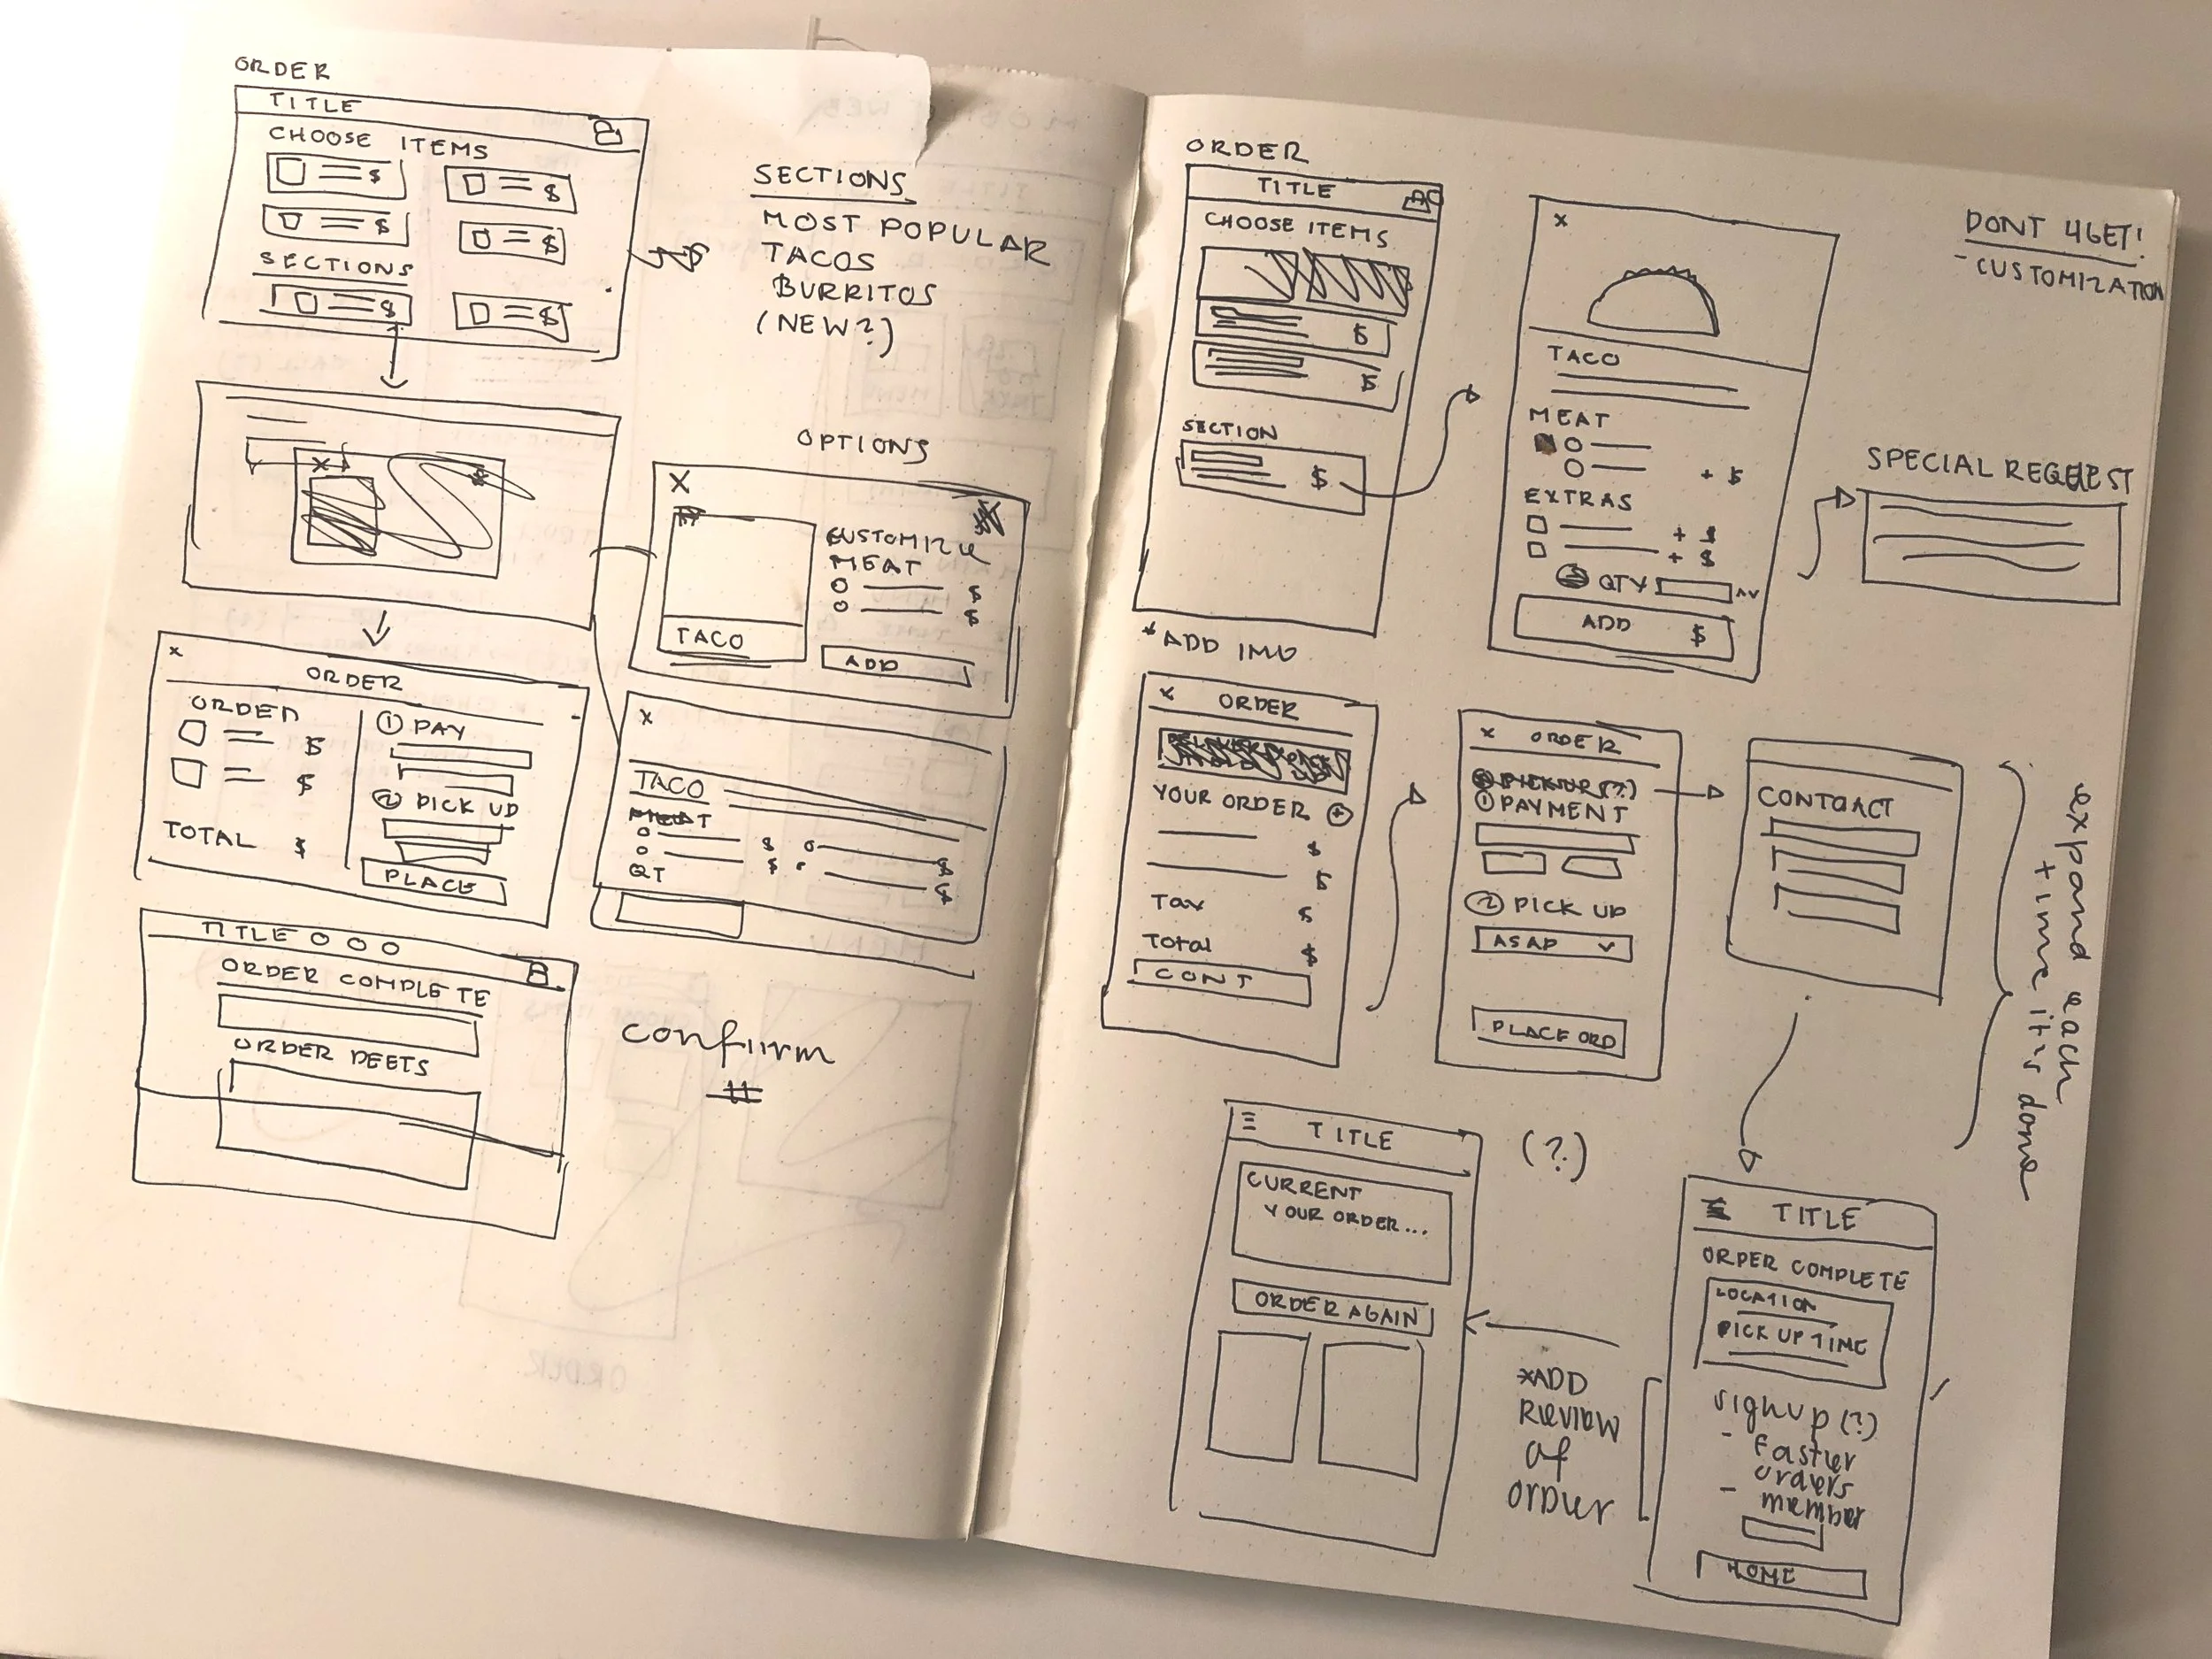 ORDER
TITLE
CHOOSE ITEMS
$ $
$ $
SECTIONS
$ $
SECTIONS
MOST POPULAR
TACOS
BURRITOS
(NEW?)
OPTIONS
X
X
CUSTOMIZE
MEAT
$
$
TACO
ADD
X
ORDER
ORDER
$
$
TOTAL $
① PAY
② PICK UP
PLACE
X
TACO
MEAT
$
$
$
$
QT
TITLE
ORDER COMPLETE
ORDER DEETS
confirm
#
ORDER
TITLE
CHOOSE ITEMS
$
$
SECTION
$
* ADD IMG
X
TACO
MEAT
+ $
EXTRAS
+ $
+ $
QTY
ADD $
DONT 4GET!
- CUSTOMIZATION
SPECIAL REQUEST
X ORDER
YOUR ORDER +
$
$
Tax $
Total $
CONT
X ORDER
PICKUP(?)
① PAYMENT
② PICK UP
ASAP
PLACE ORD
CONTACT
expand each
time it's done
TITLE
CURRENT
YOUR ORDER...
ORDER AGAIN
(?)
*ADD
REVIEW
of
order
TITLE
ORDER COMPLETE
LOCATION
PICK UP TIME
signup (?)
- Faster
orders
- member
HOME